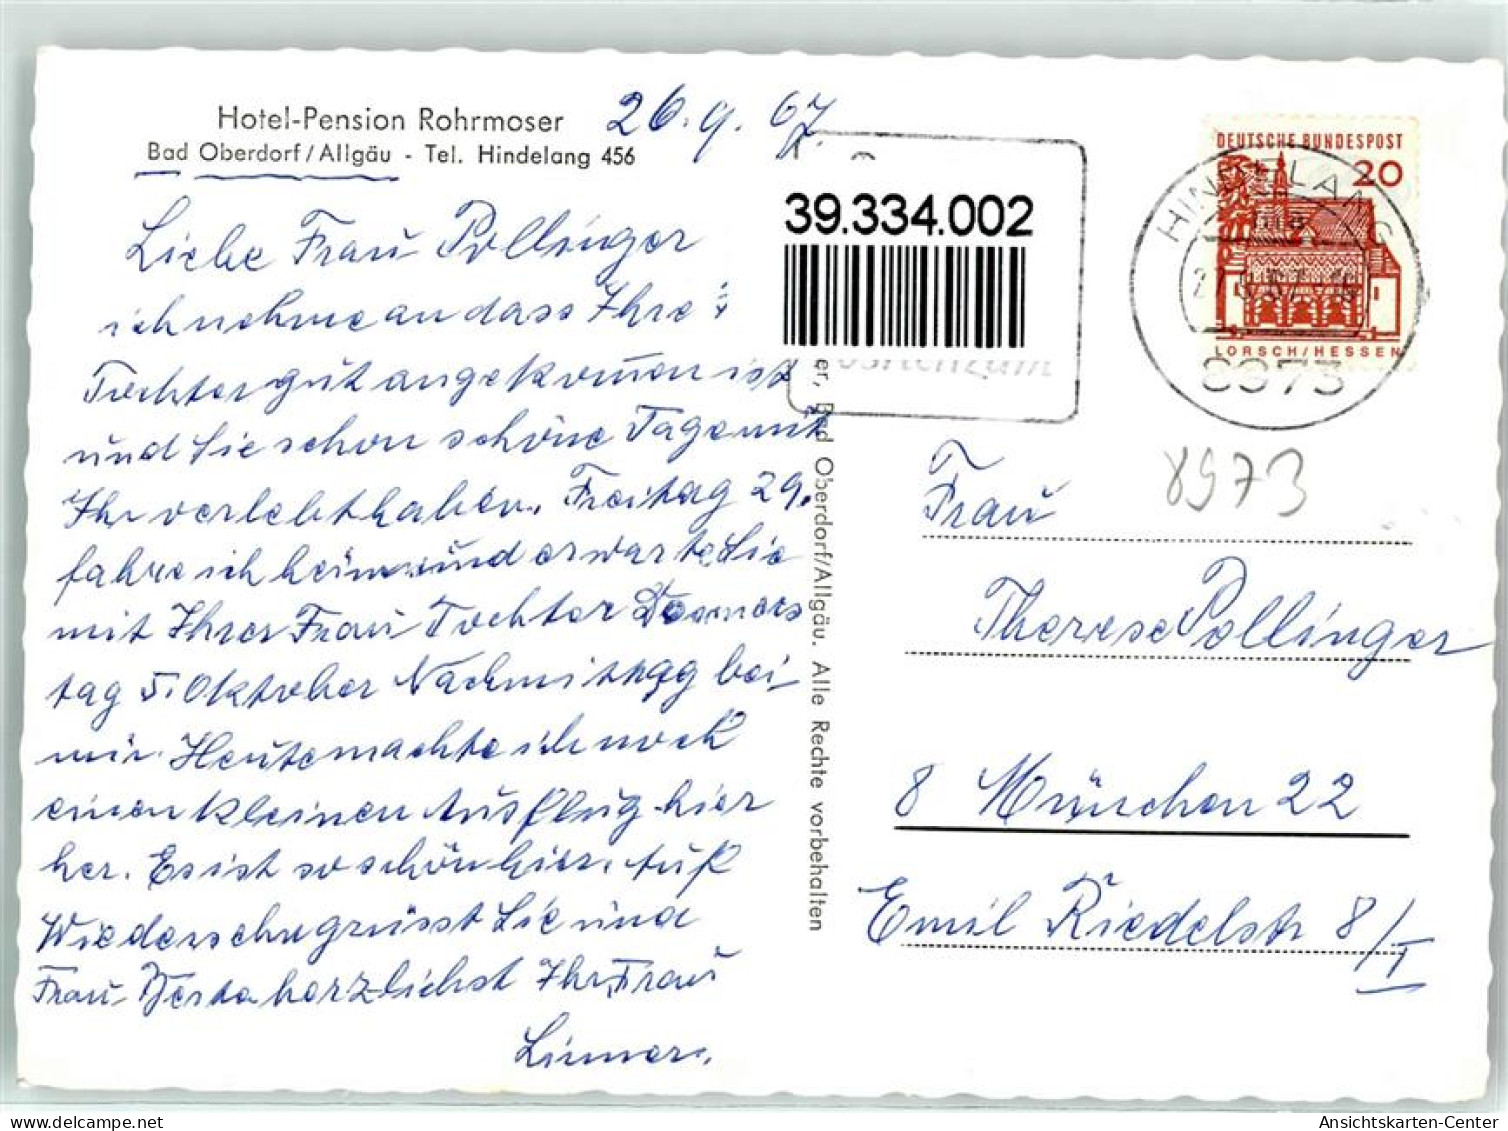 Hotel-Pension Rohrmoser
26.9.67.
Bad Oberdorf/Allgäu - Tel. Hindelang 456
Liebe Frau Pollinger
ich nehme an dass Ihre
Tochter gut angekommen ist
und Sie schon schöne Tage mit
Ihr verlebt haben. Freitag 29.
fahre ich heim und erwarte Sie
mit Ihrer Frau Tochter Donners
tag 5. Oktober Nachmittag bei
mir. Heute machte ich noch
einen kleinen Ausflug hier
her. Es ist so schön hier. Auf
Wiedersehn grüsst Sie und
Frau herzlichst Ihr Frau
39.334.002
er, Bad Oberdorf/Allgäu. Alle Rechte vorbehalten
DEUTSCHE BUNDESPOST
20
LORSCH/HESSEN
HINDELANG
8973
8973
Frau
Therese Pollinger
8 München 22
Emil Riedelstr 8/I
Ansichtskarten-Center